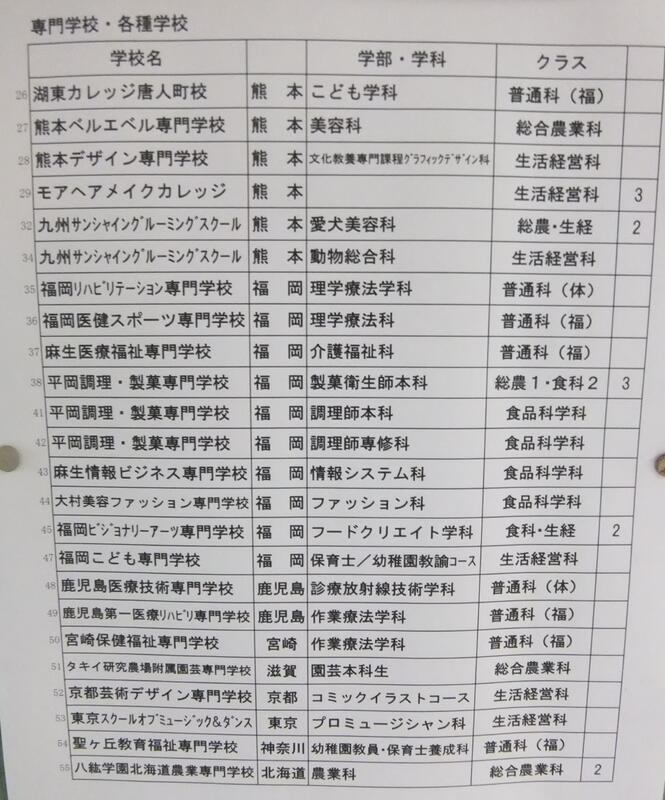 専門学校・各種学校
学校名 学部・学科 クラス
26 湖東カレッジ唐人町校 熊本 こども学科 普通科（福）
27 熊本ベルエベル専門学校 熊本 美容科 総合農業科
28 熊本デザイン専門学校 熊本 文化教養専門課程ｸﾞﾗﾌｨｯｸﾃﾞｻﾞｲﾝ科 生活経営科
29 モアヘアメイクカレッジ 熊本 生活経営科 3
32 九州ｻﾝｼｬｲﾝｸﾞﾙｰﾐﾝｸﾞスクール 熊本 愛犬美容科 総農・生経 2
34 九州ｻﾝｼｬｲﾝｸﾞﾙｰﾐﾝｸﾞスクール 熊本 動物総合科 生活経営科
35 福岡ﾘﾊﾋﾞﾘﾃｰｼｮﾝ専門学校 福岡 理学療法学科 普通科（体）
36 福岡医健スポーツ専門学校 福岡 理学療法科 普通科（福）
37 麻生医療福祉専門学校 福岡 介護福祉科 普通科（福）
38 平岡調理・製菓専門学校 福岡 製菓衛生師本科 総農１・食科２ 3
41 平岡調理・製菓専門学校 福岡 調理師本科 食品科学科
42 平岡調理・製菓専門学校 福岡 調理師専修科 食品科学科
43 麻生情報ビジネス専門学校 福岡 情報システム科 食品科学科
44 大村美容ファッション専門学校 福岡 ファッション科 食品科学科
45 福岡ﾋﾞｼﾞｮﾅﾘｰアーツ専門学校 福岡 フードクリエイト学科 食科・生経 2
47 福岡こども専門学校 福岡 保育士／幼稚園教諭ｺｰｽ 生活経営科
48 鹿児島医療技術専門学校 鹿児島 診療放射線技術学科 普通科（体）
49 鹿児島第一医療ﾘﾊﾋﾞﾘ専門学校 鹿児島 作業療法学科 普通科（福）
50 宮崎保健福祉専門学校 宮崎 作業療法学科 普通科（福）
51 タキイ研究農場附属園芸専門学校 滋賀 園芸本科生 総合農業科
52 京都芸術デザイン専門学校 京都 コミックイラストコース 生活経営科
53 東京ｽｸｰﾙｵﾌﾞﾐｭｰｼﾞｯｸ&ﾀﾞﾝｽ 東京 プロミュージシャン科 生活経営科
54 聖ヶ丘教育福祉専門学校 神奈川 幼稚園教員・保育士養成科 普通科（福）
55 八紘学園北海道農業専門学校 北海道 農業科 総合農業科 2